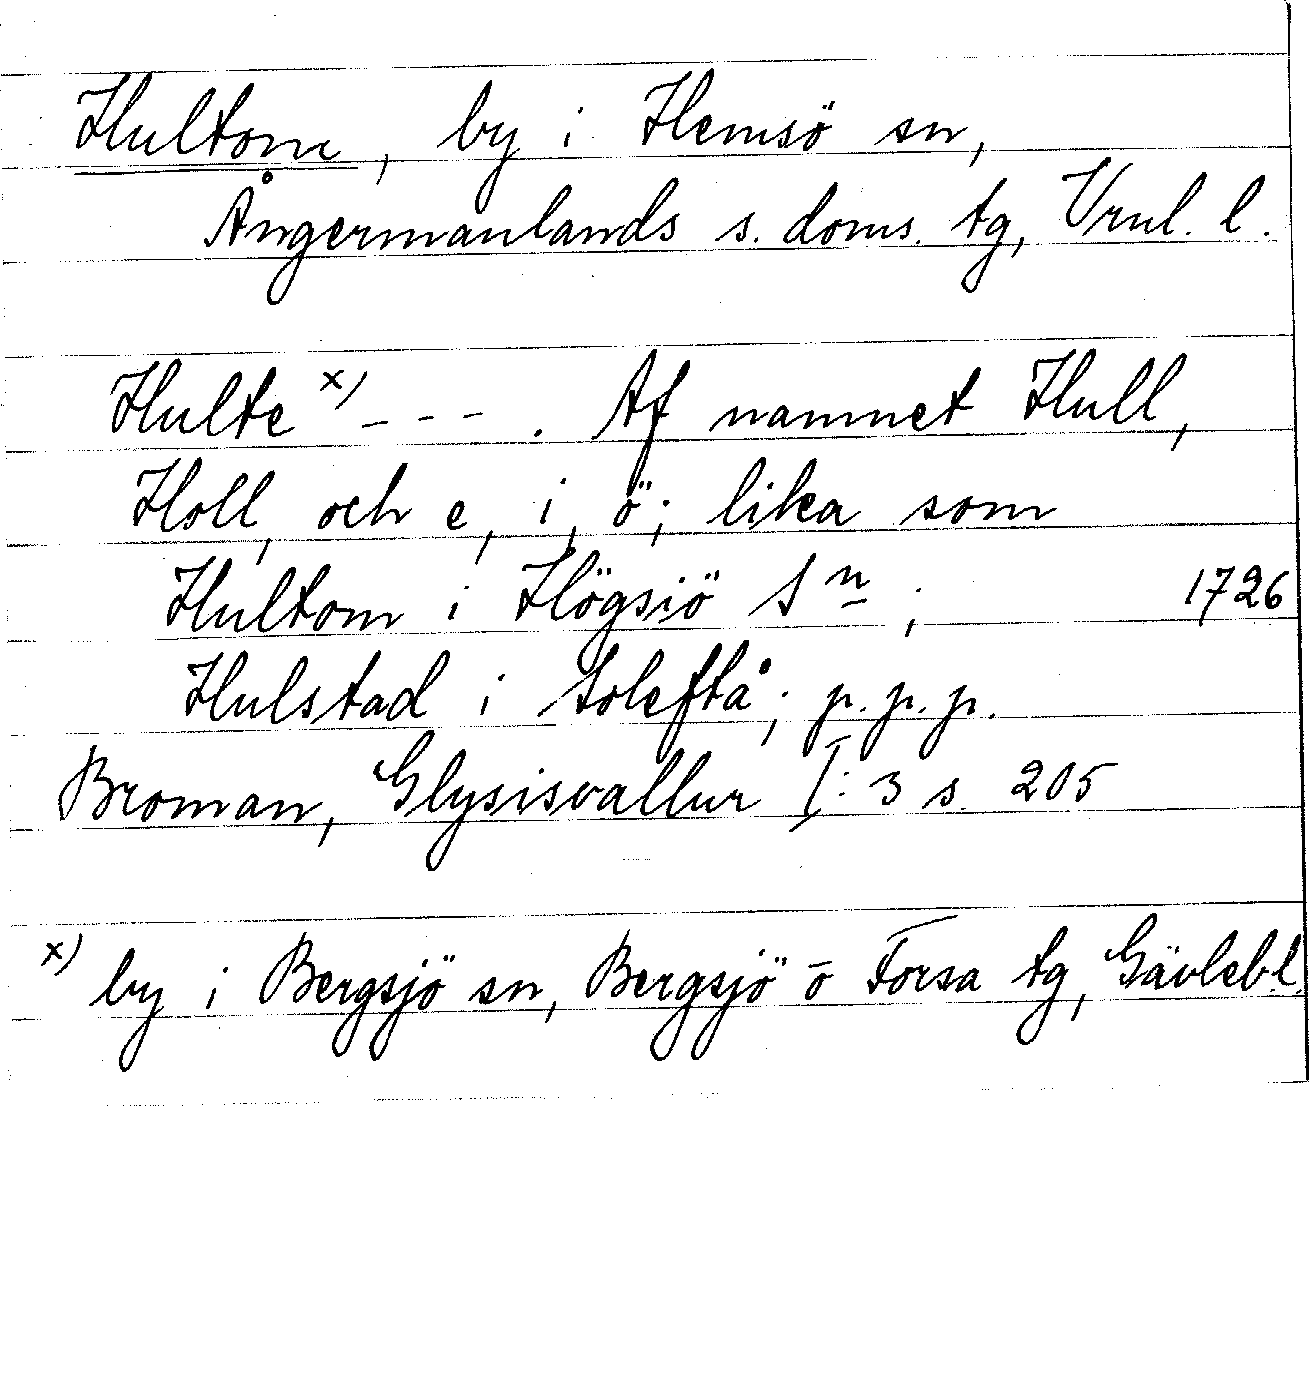 Hultom, by i Hemsö sn,
Ångermanlands s. doms. tg, Vrnl. l.
Hulte x) - - - . Af namnet Hull,
Holl, och e, i, ö; lika som
Hultom i Högsiö Sn ; 1726
Hulstad i Soleftå; p. p. p.
Broman, Glysisvallur I: 3 s. 205
x) by i Bergsjö sn, Bergsjö o Forsa tg, Gävleb.l.